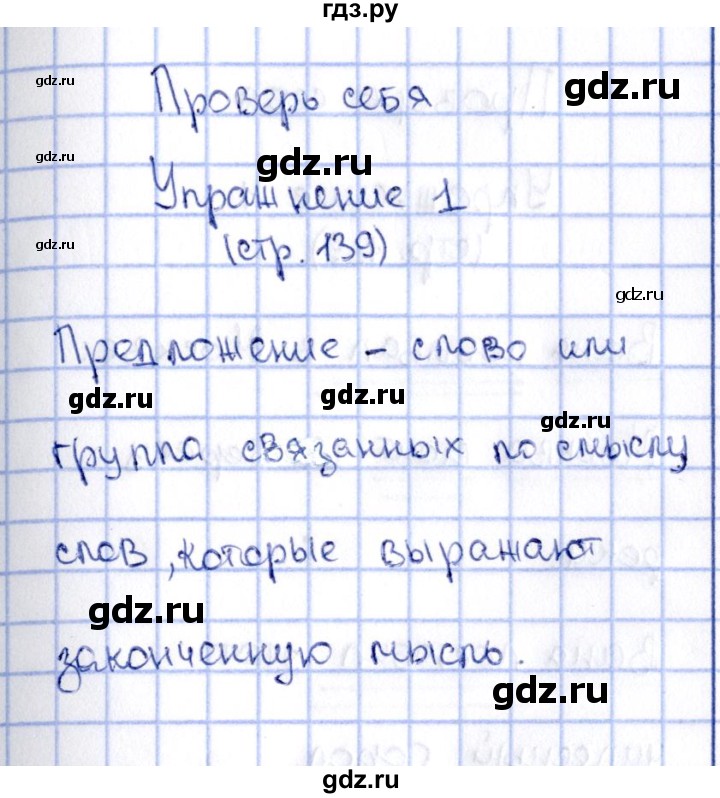 гдз.ру
Проверь себя
gdz.ru
gdz.ru
gdz.ru
gdz.ru
Упражнение 1
(стр. 139)
gdz.ru
gdz.ru
Предложение – слово или
gdz.ru
gdz.ru
gdz.ru
группа связанных по смыслу
слов, которые выражают
gdz.ru
законченную мысль.
gdz.ru
gdz.ru